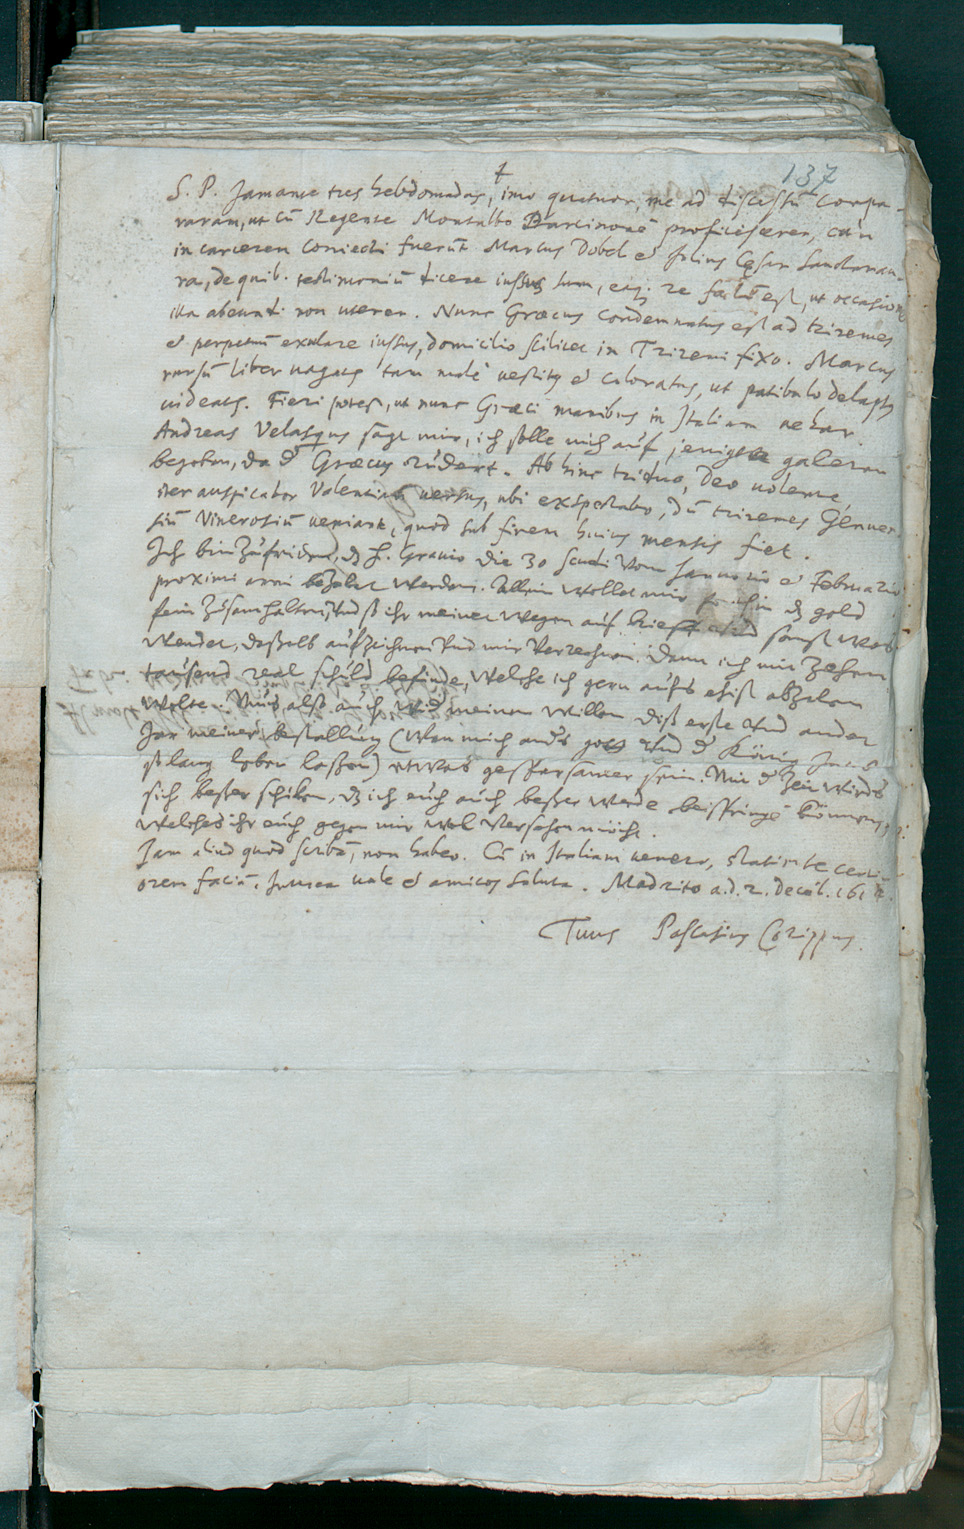 137
S. P. Jamante tres hebdomadas, imo quatuor, me ad discessū compa-
raram, ut cū Regente Montalbo Barcinonē proficiscerer, cum
in carcerem coniecti fuerūt Marcus Dobel et Julius Cęsar Sanctamau-
ra, de quib. testimoniū dicere iussus sum, eaq; re factū est, ut occasione
illa abeundi non uterer. Nunc Græcus condemnatus est ad triremes
et perpetuū exulare iussus, domicilio scilicet in Triremi fixo. Marcus
rursū liber vagatur tam malè vestitus et coloratus, ut patibulo delapsus
videatur. Fieri potest, ut nunc Græci manibus in Italiam vehar.
Andreas Velasqus sagt mir, ich solle mich auf jenige galeren
begeben, da d Græcus rudert. Ab hinc triduo, Deo volente
iter auspicabor Valentiam versus, ubi exspectabo, dū triremes Genuen
siū Vinerosiū veniant, quod sub finem huius mensis fiet.
Ich bin zufriden, dz H. Gravio die 30 scudi vom Januario et Februario
proximi anni bezalet werden. Allein wollet mir dz gold
fein zusamhalten, und so ihr meinet wegen auf brieff und sonst was
wendet, dasselb aufzeichnen und mir verrechnen. Dann ich mir zehen
tausend real schuld befinde, welche ich gern aufs ehist abzalen
wolte. Mus also auch wid meinen willen diß erste und ander
Jar meiner bestallung (wan mich ands gott und d König
so lang leben laßen) etwas gesparsamer sein. Mit d Zeit wirds
sich beßer schiken, dz ich euch auch beßer werde beispringē können,
welches ihr euch gegen mir wol versehen möcht.
Jam aliud quod scribā, non habeo. Cū in Italiam venero, statim te certi-
orem faciā. Interea vale et amicos saluta. Madrito a.d. 2. Decēb. 161
Tuus Pascasius Corippus.